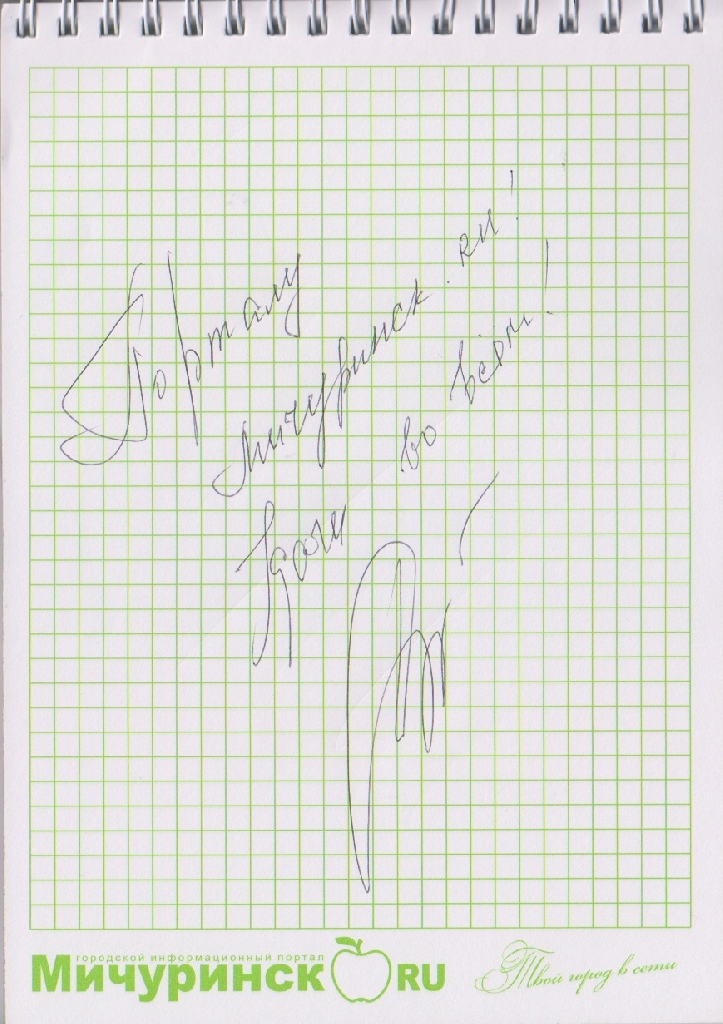 Порталу
Мичуринск.ru!
Удачи во всём!
городской информационный портал
Мичуринск RU
Твой город в сети